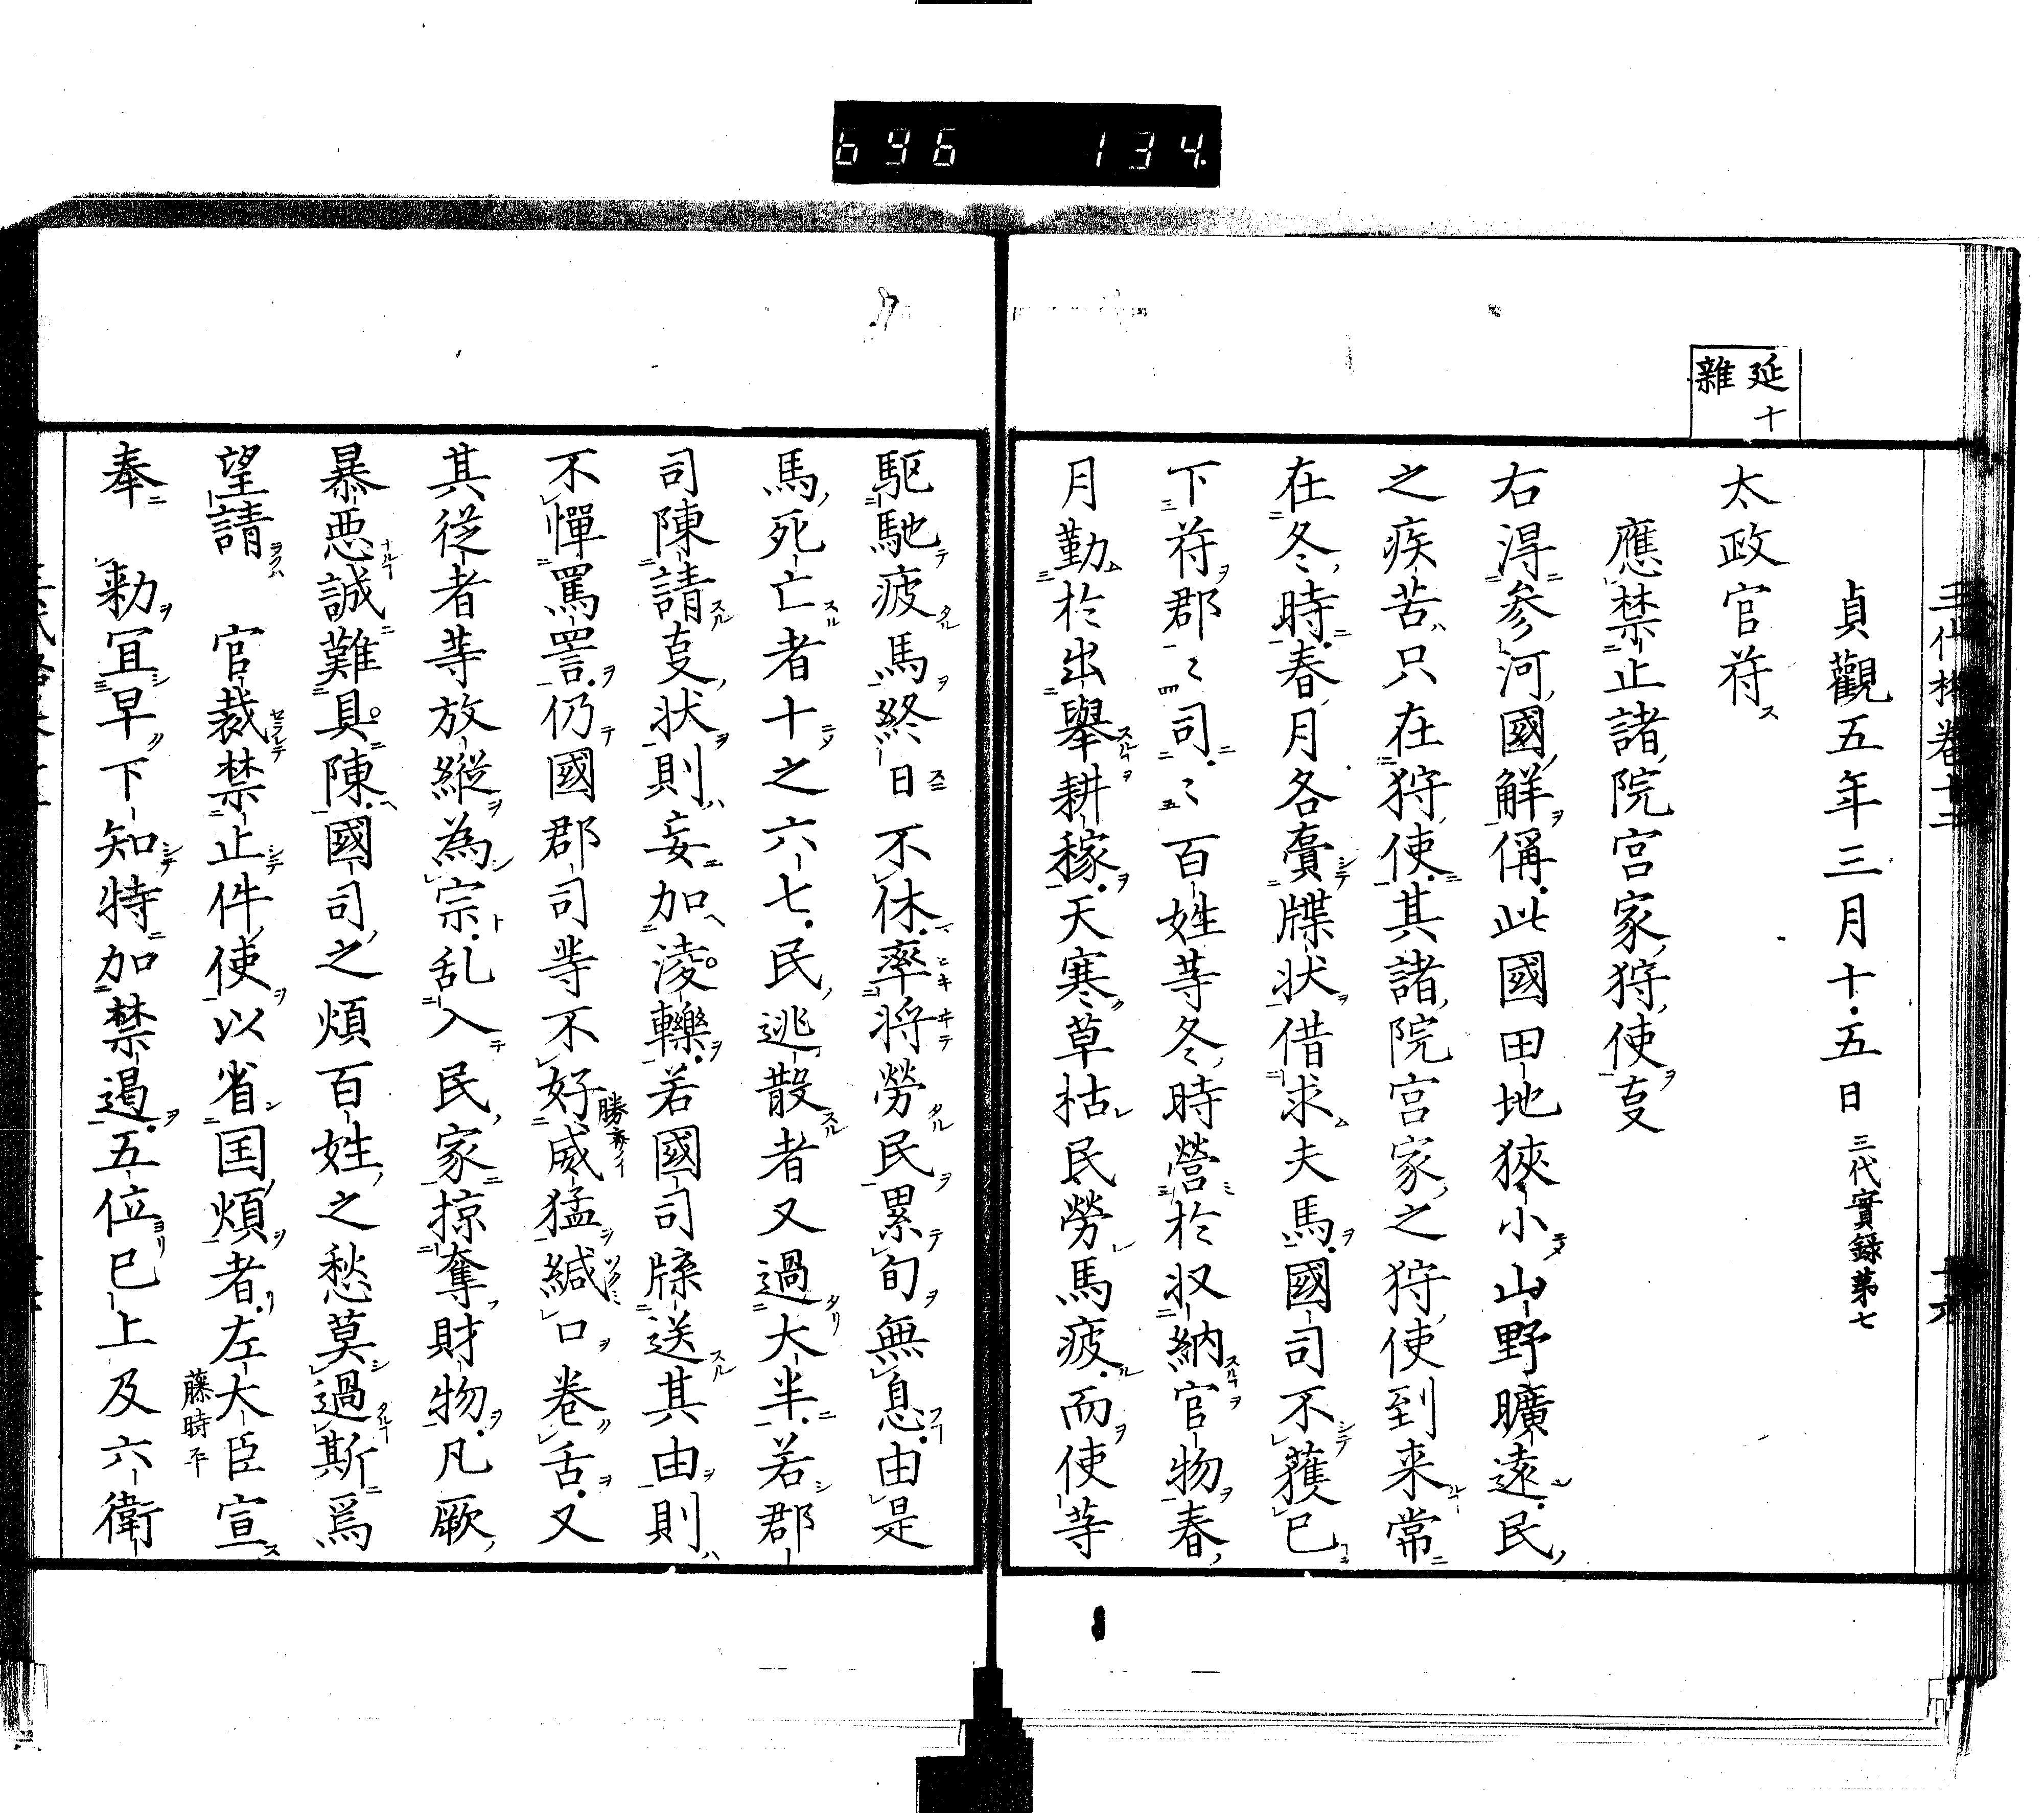 696 134
三代格卷十二
貞觀五年三月十五日 三代實録第七
延十
雜
太政官符ス
應禁止諸院宮家狩使㕝
右得參河國解偁此國田地狹小山野曠遠民
之疾苦只在狩使其諸院宮家之狩使到来常
在冬時春月各賷牒状借求夫馬國司不獲已
下符郡〻司〻百姓等冬時營於収納官物春
月勤於出舉耕稼天寒草枯民勞馬疲而使等
駈馳疲馬終日不休率将勞民累旬無息由是
馬死亡者十之六七民逃散者又過大半若郡
司陳請㕝状則妄加淩轢若國司牒送其由則
不憚罵詈仍國郡司等不好威猛緘口卷舌又
其従者等放縦為宗乱入民家掠奪財物凡厥
暴悪誠難具陳國司之煩百姓之愁莫過斯爲
望請 官裁禁止件使以省国煩者左大臣宣
藤時平
奉 勅冝早下知特加禁遏五位已上及六衛